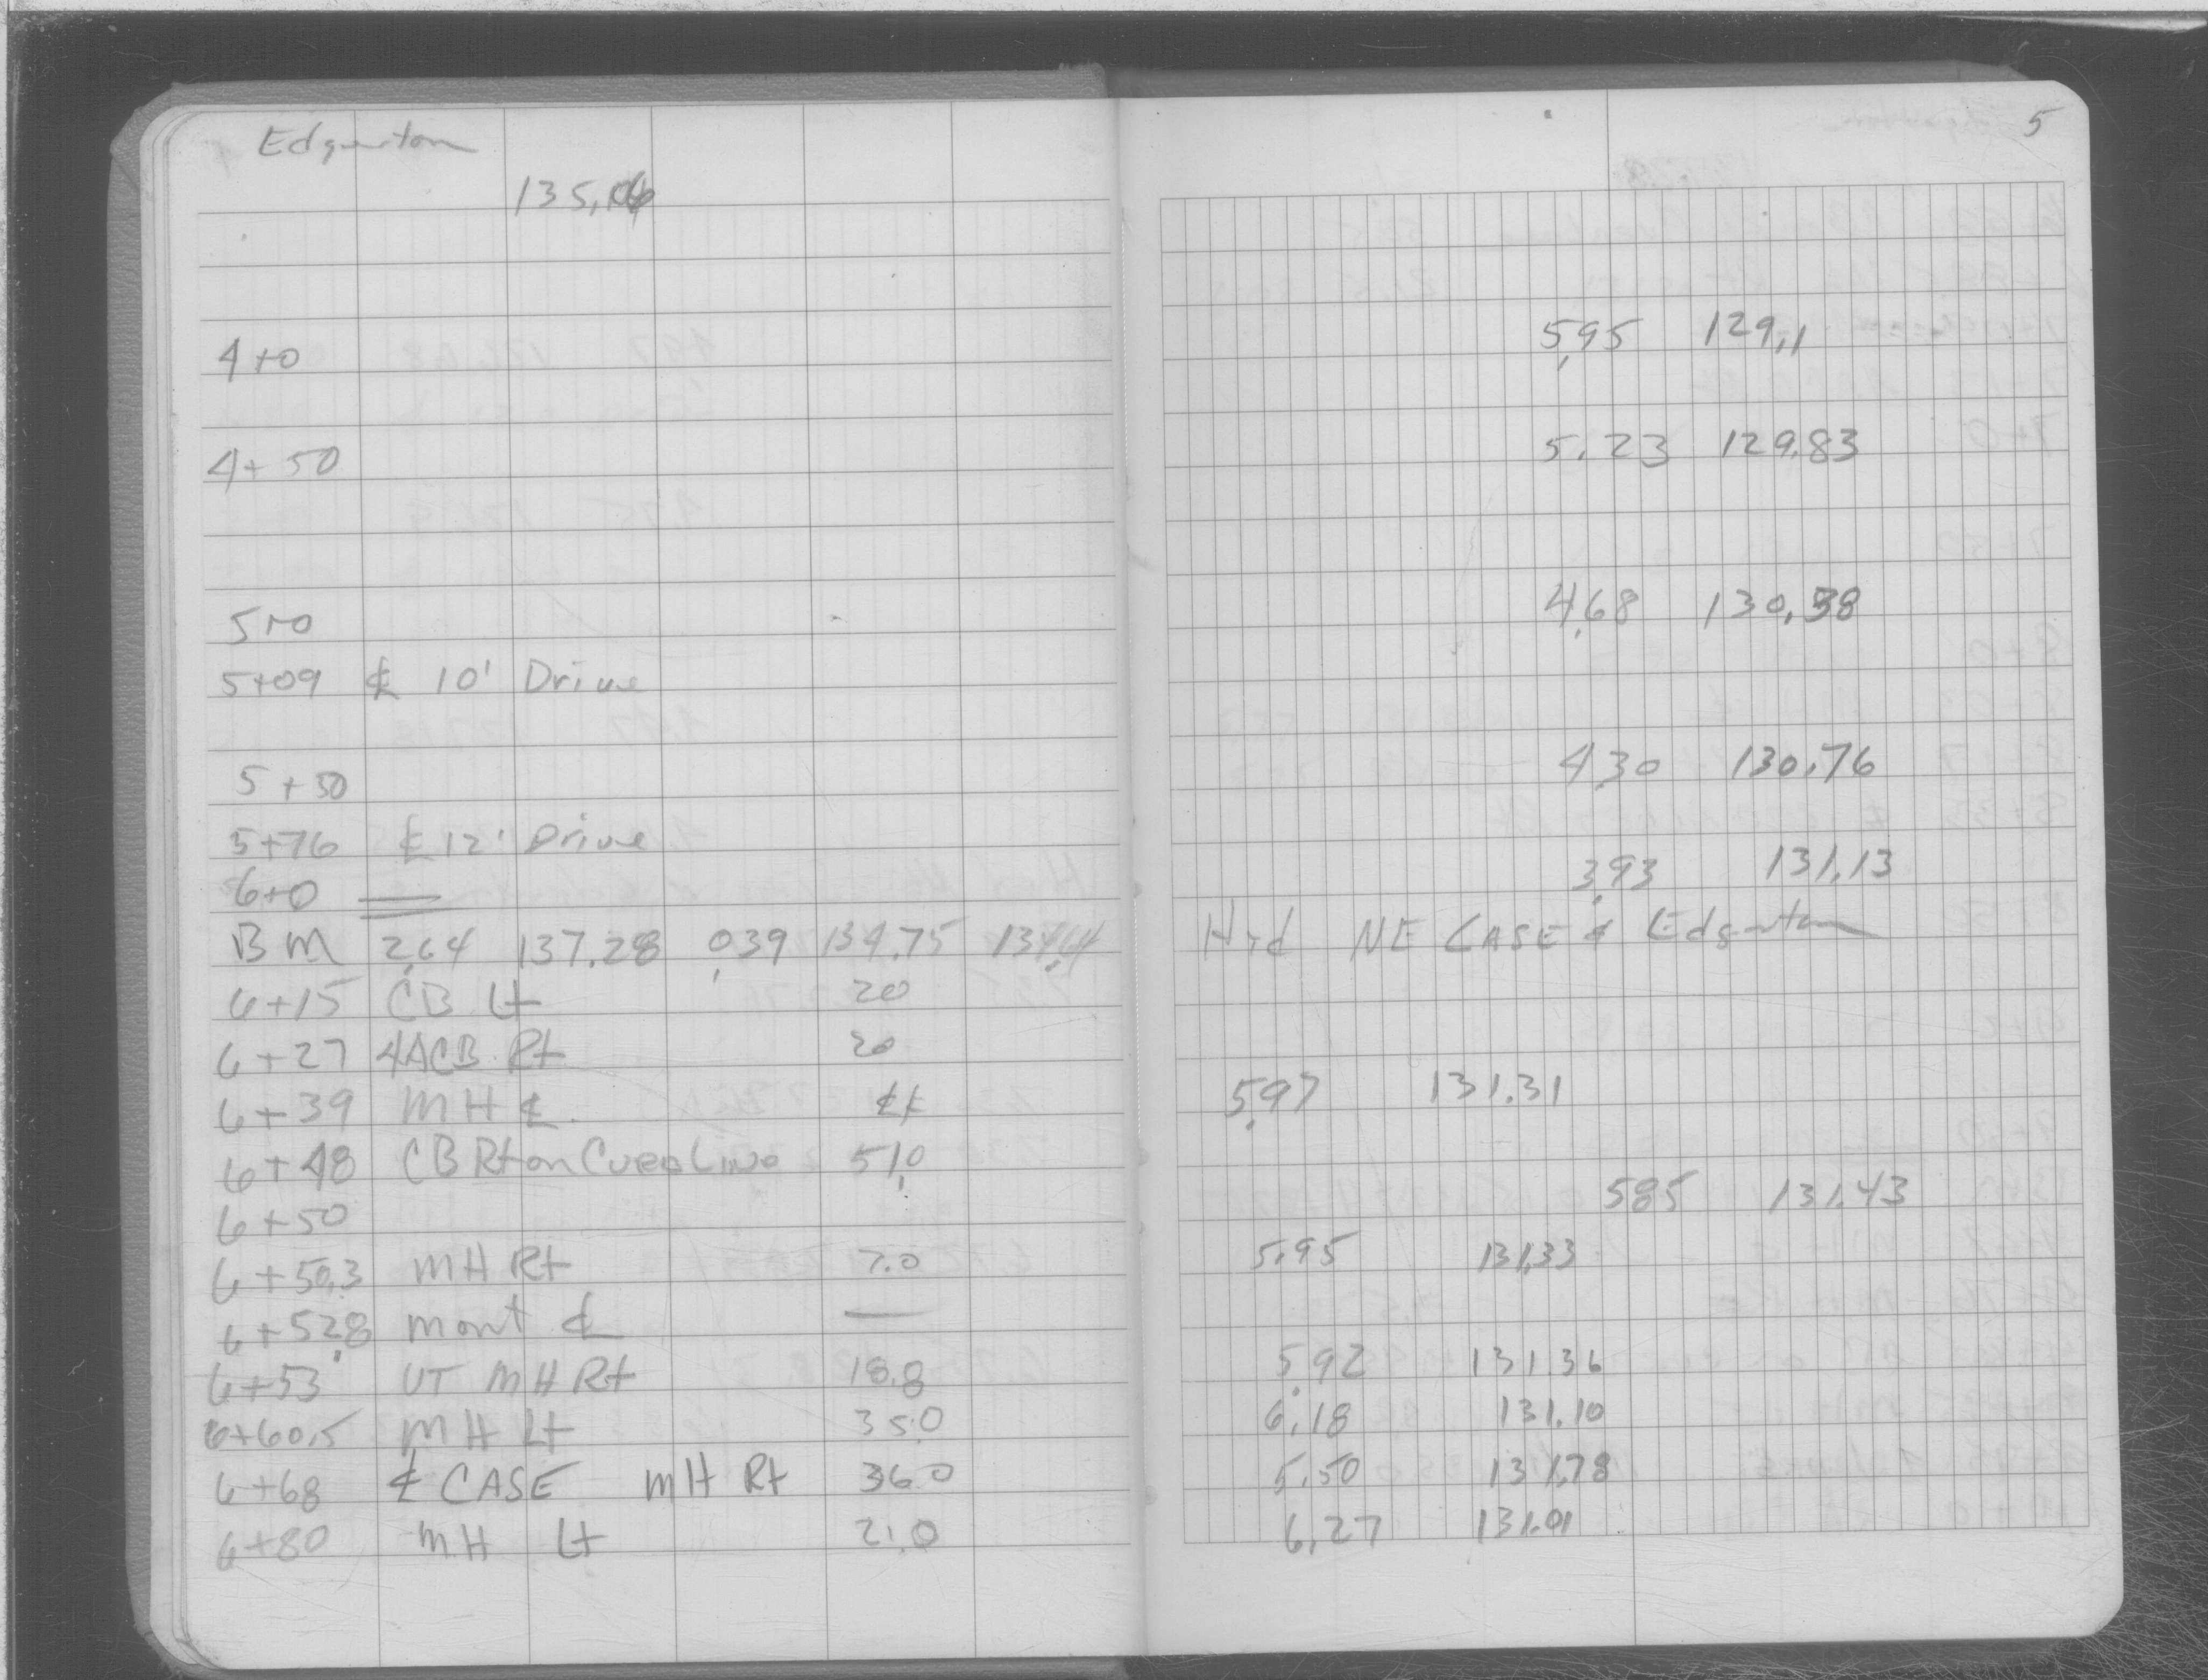 Edgerton
5
135.06
4+0 5.95 129.1
4+50 5.23 129.83
5+0 4.68 130.38
5+09 ℄ 10' Drive
5+50 4.30 130.76
5+76 ℄ 12' Drive
6+0 3.93 131.13
BM 2.64 137.28 0.39 134.75 134.64 Hyd NE CASE & Edgerton
6+15 CB Lt 20
6+27 CB Rt 20
6+39 MH ℄ 5.97 131.31
6+48 CB Rt on Curb Line 51.0
6+50 5.85 131.43
6+50.3 MH Rt 7.0 5.95 131.33
6+52.8 mont ℄ —
6+53 UT MH Rt 18.8 5.92 131.36
6+60.5 MH Lt 35.0 6.18 131.10
6+68 ℄ CASE MH Rt 36.0 5.50 131.78
6+80 MH Lt 21.0 6.27 131.01